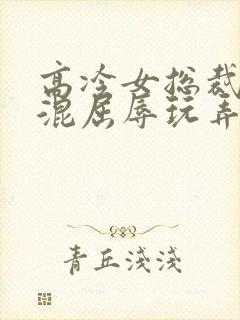 高冷女总裁
混屈辱玩弄
青丘浅浅